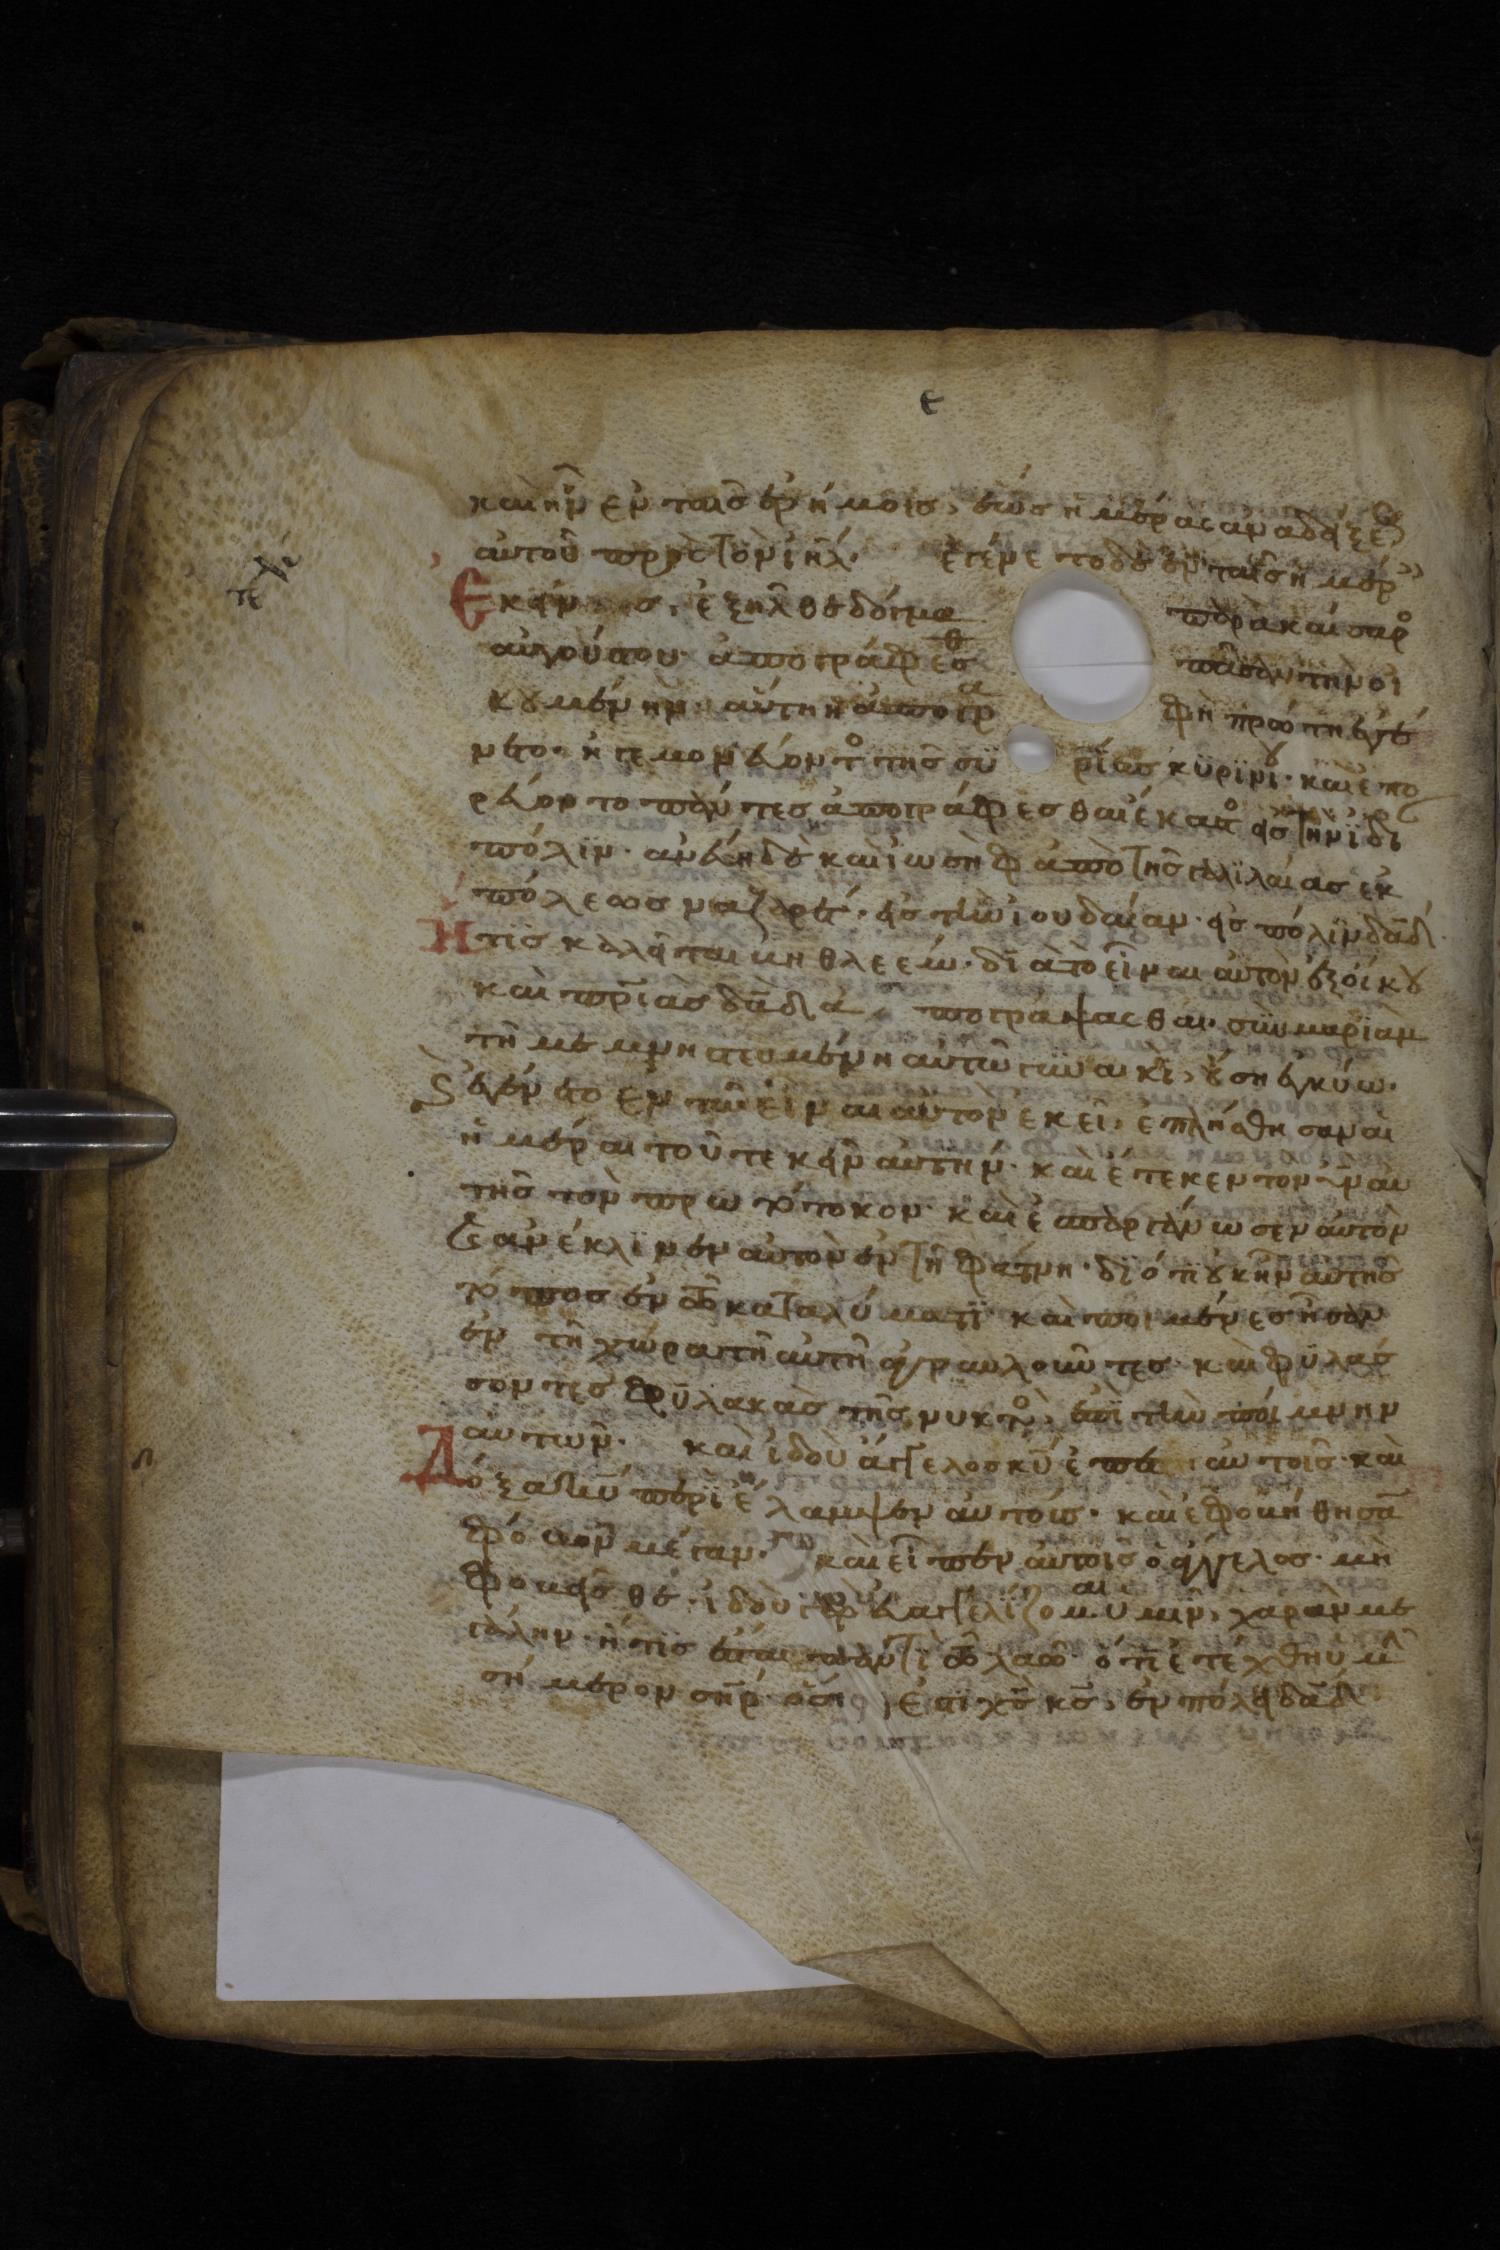 ε
καὶ ἦν ἐν ταῖς ἐρήμοις, ἕως ἡμέρας ἀναδείξε
αὐτοῦ πρὸς τὸν ἰηλ. ἐγένετο δὲ ἐν ταῖς ἡμέρ
Ἐκείναις, ἐξῆλθε δόγμα παρὰ καίσαρο
αὐγούστου ἀπογράφεσθ πᾶσαν τὴν οἰ
κουμένην. αὕτη ἡ ἀπογρα φὴ πρώτη ἐγέ
νετο. ἡγεμονεύοντο τῆς συ ρίας κυρινίου. καὶ ἐπο
ρεύοντο πάντες ἀπογράφεσθαι ἕκαστο εἰς τὴν ἰδί
πόλιν. ἀνέβη δὲ καὶ ἰωσὴφ ἀπὸ τῆς γαλιλαίας ἐκ
πόλεως ναζαρέτ. εἰς τὴν ἰουδαίαν. εἰς πόλιν δαδ.
Ἥτις καλεῖται βηθλεέμ. διὰ τὸ εἶναι αὐτὸν ἐξ οἴκου
καὶ πριᾶς δαδ ἀπογράψασθαι. σὺν μαριὰμ
τῇ μεμνηστευμένῃ αὐτῷ γυναικί, οὔσῃ ἐγκύω.
ἐγένετο ἐν τῷ εἶναι αὐτοὺς ἐκεῖ, ἐπλήσθησαν αἱ
ἡμέραι τοῦ τεκεῖν αὐτήν. καὶ ἔτεκεν τὸν υν αὐ
τῆς τὸν πρωτότοκον. καὶ ἐσπαργάνωσεν αὐτὸν
καὶ ἀνέκλινεν αὐτὸν ἐν τῇ φάτνῃ. διότι οὐκ ἦν αὐτῆς
τόπος ἐν τῷ καταλύματι. καὶ ποιμένες ἦσαν
ἐν τῇ χώρα τῇ αὐτῇ ἀγραυλοῦντες. καὶ φυλάσ
σοντες φυλακὰς τῆς νυκτὸ, ἐπὶ τὴν ποίμνην
αὐτῶν. καὶ ἰδοὺ ἄγγελος κυ ἐπέστη αὐτοῖς. καὶ
Δόξα κυ περιέλαμψεν αὐτούς. καὶ ἐφοβήθησα
φόβον μέγαν. καὶ εἶπεν αὐτοῖς ὁ ἄγγελος. μὴ
φοβεῖσθε. ἰδοὺ γὰρ εὐαγγελίζομαι ὑμῖν, χαρὰν με
γάλην. ἥτις ἔσται παντὶ τῷ λαῷ. ὅτι ἐτέχθη ὑμ
σήμερον σηρ. ὅς ἐστι χς κς, ἐν πόλει δαδ